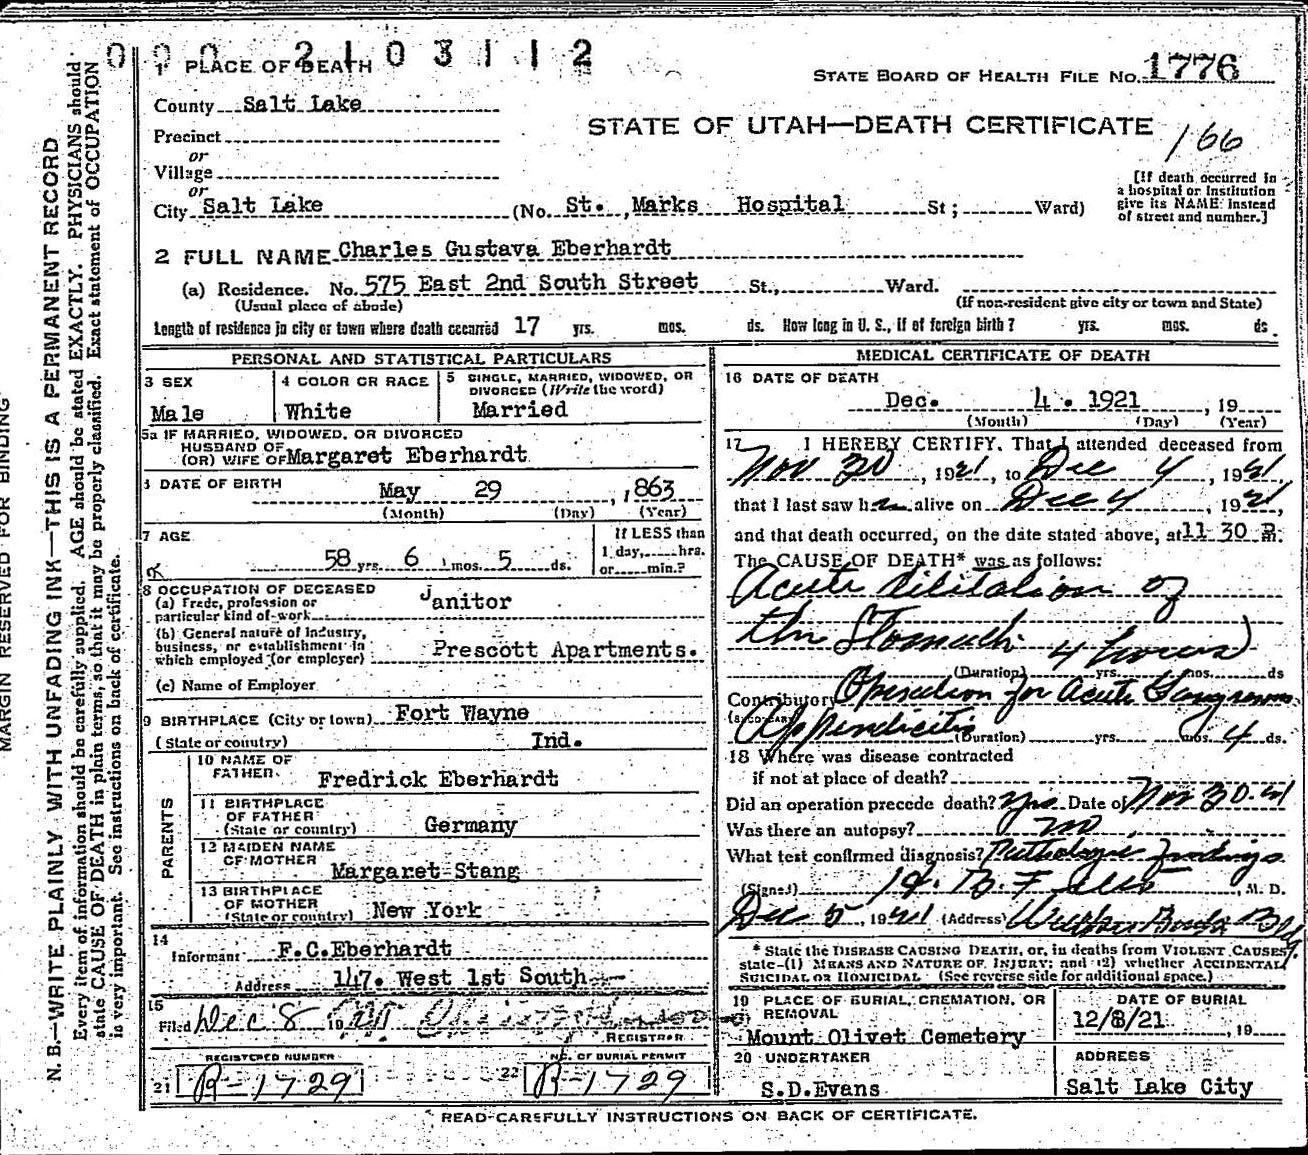 000 2103112
1 PLACE OF DEATH
STATE BOARD OF HEALTH FILE No. 1776
County Salt Lake
STATE OF UTAH—DEATH CERTIFICATE
166
Precinct
or
Village
or
City Salt Lake (No. St. Marks Hospital St; Ward)
[If death occurred in
a hospital or institution
give its NAME instead
of street and number.]
2 FULL NAME Charles Gustava Eberhardt
(a) Residence. No. 575 East 2nd South Street St., Ward.
(Usual place of abode) (If non-resident give city or town and State)
Length of residence in city or town where death occurred 17 yrs. mos. ds. How long in U. S., if of foreign birth? yrs. mos. ds.
PERSONAL AND STATISTICAL PARTICULARS
3 SEX
Male
4 COLOR OR RACE
White
5 SINGLE, MARRIED, WIDOWED, OR
DIVORCED (Write the word)
Married
5a IF MARRIED, WIDOWED, OR DIVORCED
HUSBAND OF
(OR) WIFE OF Margaret Eberhardt
DATE OF BIRTH May 29, 1863
(Month) (Day) (Year)
7 AGE
58 yrs. 6 mos. 5 ds.
If LESS than
1 day, hrs.
or min.?
8 OCCUPATION OF DECEASED
(a) Trade, profession or
particular kind of work Janitor
(b) General nature of Industry,
business, or establishment in
which employed (or employer) Prescott Apartments.
(c) Name of Employer
9 BIRTHPLACE (City or town) Fort Wayne
(State or country) Ind.
PARENTS
10 NAME OF
FATHER Fredrick Eberhardt
11 BIRTHPLACE
OF FATHER
(State or country) Germany
12 MAIDEN NAME
OF MOTHER Margaret Stang
13 BIRTHPLACE
OF MOTHER
(State or country) New York
14
Informant F.C.Eberhardt
Address 147. West 1st South
15
Filed Dec 8 1921
REGISTRAR
REGISTERED NUMBER
21 R-1729
NO. OF BURIAL PERMIT
22 R-1729
MEDICAL CERTIFICATE OF DEATH
16 DATE OF DEATH
Dec. 4. 1921, 19
(Month) (Day) (Year)
17 I HEREBY CERTIFY, That I attended deceased from
Nov 30, 1921, to Dec 4, 1921,
that I last saw him alive on Dec 4 1921,
and that death occurred, on the date stated above, at 11 30 P.M.
The CAUSE OF DEATH* was as follows:
Acute dilitation of
the Stomach 4 hours)
(Duration) yrs. mos. ds
Contributory Operation for Acute Gangrenous
(SECONDARY) Appendicitis (Duration) yrs. mos. 4 ds.
18 Where was disease contracted
if not at place of death?
Did an operation precede death? Yes Date of Nov 30-21
Was there an autopsy? no
What test confirmed diagnosis? Pathologic findings
(Signed) M. D.
Dec 5 1921 (Address) Bldg.
* State the DISEASE CAUSING DEATH, or, in deaths from VIOLENT CAUSES,
state (1) MEANS AND NATURE OF INJURY; and (2) whether ACCIDENTAL,
SUICIDAL OR HOMICIDAL. (See reverse side for additional space.)
19 PLACE OF BURIAL, CREMATION, OR
REMOVAL
Mount Olivet Cemetery
DATE OF BURIAL
12/8/21, 19
20 UNDERTAKER
S.D.Evans
ADDRESS
Salt Lake City
READ CAREFULLY INSTRUCTIONS ON BACK OF CERTIFICATE.
MARGIN RESERVED FOR BINDING
N. B.—WRITE PLAINLY WITH UNFADING INK—THIS IS A PERMANENT RECORD
Every item of information should be carefully supplied. AGE should be stated EXACTLY. PHYSICIANS should
state CAUSE OF DEATH in plain terms, so that it may be properly classified. Exact statement of OCCUPATION
is very important. See instructions on back of certificate.